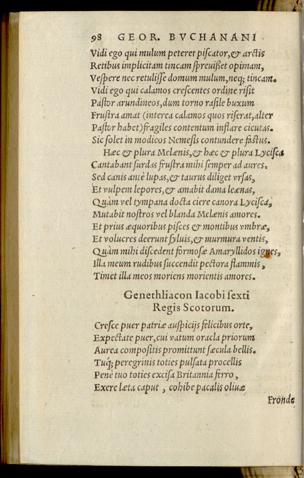 98 GEOR. BVCHANANI
Vidi ego qui mulum peteret piscator, & arctis
Retibus implicitam tincam spreuisset opimam,
Vespere nec retulisse domum mulum, neq; tincam.
Vidi ego qui calamos crescentes ordine risit
Pastor arundineos, dum torno rasile buxum
Frustra amat (interea calamos quos riserat, alter
Pastor habet) fragiles contentum inflare cicutas.
Sic solet in modicos Nemesis contundere fastus.
Hæc & plura Melænis, & hæc & plura Lycisca
Cantabant surdas frustra mihi semper ad aures.
Sed canis antè lupas, & taurus diliget vrsas,
Et vulpem lepores, & amabit dama leænas,
Quàm vel tympana docta ciere canora Lycisca,
Mutabit nostros vel blanda Melænis amores.
Et prius æquoribus pisces & montibus vmbræ,
Et volucres deerunt syluis, & murmura ventis,
Quàm mihi discedent formosæ Amaryllidos ignes,
Illa meum rudibus succendit pectora flammis,
Finiet illa meos moriens morientis amores.
Genethliacon Iacobi sexti
Regis Scotorum.
Cresce puer patriæ auspicijs felicibus orte,
Expectate puer, cui vatum oracla priorum
Aurea compositis promittunt sæcula bellis.
Tuq; peregrinis toties pulsata procellis
Penè tuo toties excisa Britannia ferro,
Exere læta caput, cohibe pacalis oliuæ
Fronde